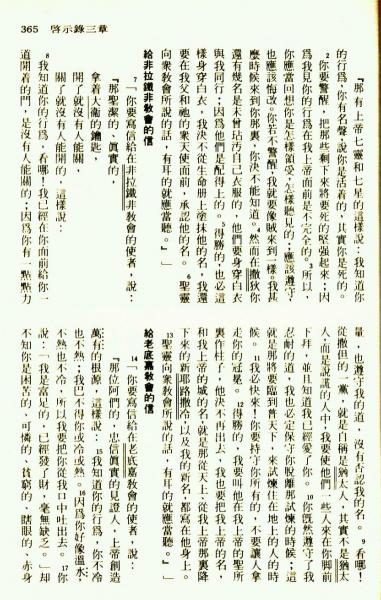 365 啓示錄三章
『那有上帝七靈和七星的這樣說：我知道你
的行爲，你有名聲，說你是活着的，其實你是死的。
2你要警醒，把那些剩下來將要死的堅强起來；因
爲我見你的行爲在我上帝面前是不完全的。3所以，
你應當回想你是怎樣領受，怎樣聽見的，應該遵守，
也應該悔改。你若不警醒，我就要像賊來到一樣。我甚
麼時候來到你那裏，你決不能知道。4然而在撒狄你
還有幾名是未曾玷汚自己衣服的，他們要身穿白衣
與我同行；因爲他們是配得上的。5得勝的，也必這
樣身穿白衣，我決不從生命册上塗抹他的名，我還
要在我父和祂的衆天使面前，承認他的名。6聖靈
向衆敎會所說的話，有耳的就應當聽。』」
給非拉鐵非敎會的信
7「你要寫信給在非拉鐵非敎會的使者，說：
『那聖潔的，眞實的，
拿着大衞的鑰匙，
開了就沒有人能關，
關了就沒有人能開的，這樣說：
8我知道你的行爲，看哪！我已經在你面前給一
道開着的門，是沒有人能關的；因爲你有一點點力
量，也遵守我的道，沒有否認我的名。9看哪！
從撒但的一黨，就是自稱是猶太人，其實不是猶太
人，而是說謊的人中，我要使他們一些人來在你脚前
下拜，並且知道我已經愛了你。10你旣然遵守了我
忍耐的道，我也必定保守你脫離那試煉的時候；這
就是那將要臨到普天下，來試煉住在地上的人的時
候。11我必快來！你要持守你所有的，不要讓人拿
走你的冠冕。12得勝的，我要叫他在我上帝的聖所
裏作柱子，他決不再出去，我也要把我上帝的名，
和我上帝的城的名，就是那從天上、從我上帝那裏降
下來的新耶路撒冷，以及我的新名，都寫在他身上。
13聖靈向衆敎會所說的話，有耳的就應當聽。』」
給老底嘉敎會的信
14「你要寫信給在老底嘉敎會的使者，說：
『那位阿們的，忠信眞實的見證人，上帝創造
萬有的根源，這樣說：15我知道你的行爲，你不冷
也不熱；我巴不得你或冷或熱。16因爲你好像溫水，
不熱也不冷，所以我要把你從我口中吐出去。17你
說：『我是富足的，已經發了財，毫無缺乏。』却
不知你是困苦的、可憐的、貧窮的、瞎眼的、赤身